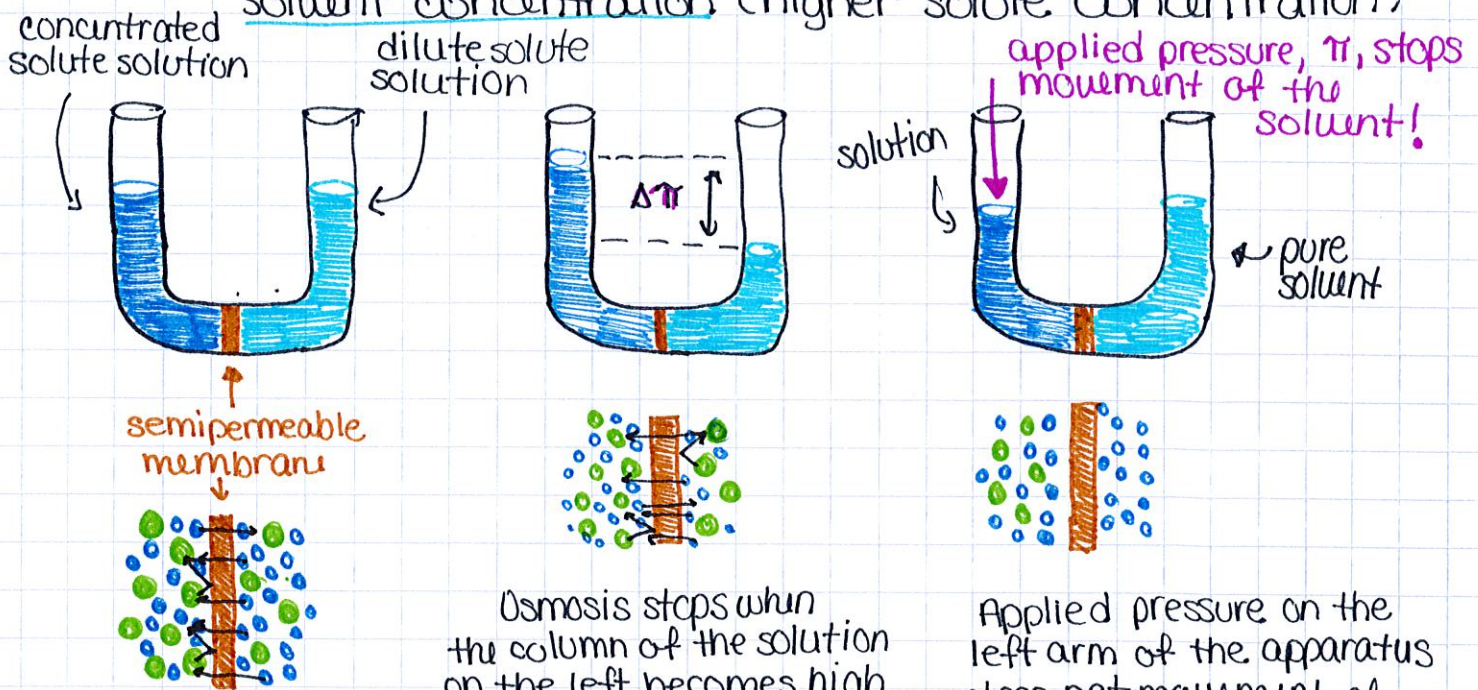 solvent concentration (higher solute concentration)
concentrated
solute solution
dilute solute
solution
applied pressure, π, stops
movement of the
solvent!
solution
Δπ
pure
solvent
semipermeable
membrane
Osmosis stops when
the column of the solution
on the left becomes high
Applied pressure on the
left arm of the apparatus
stops net movement of